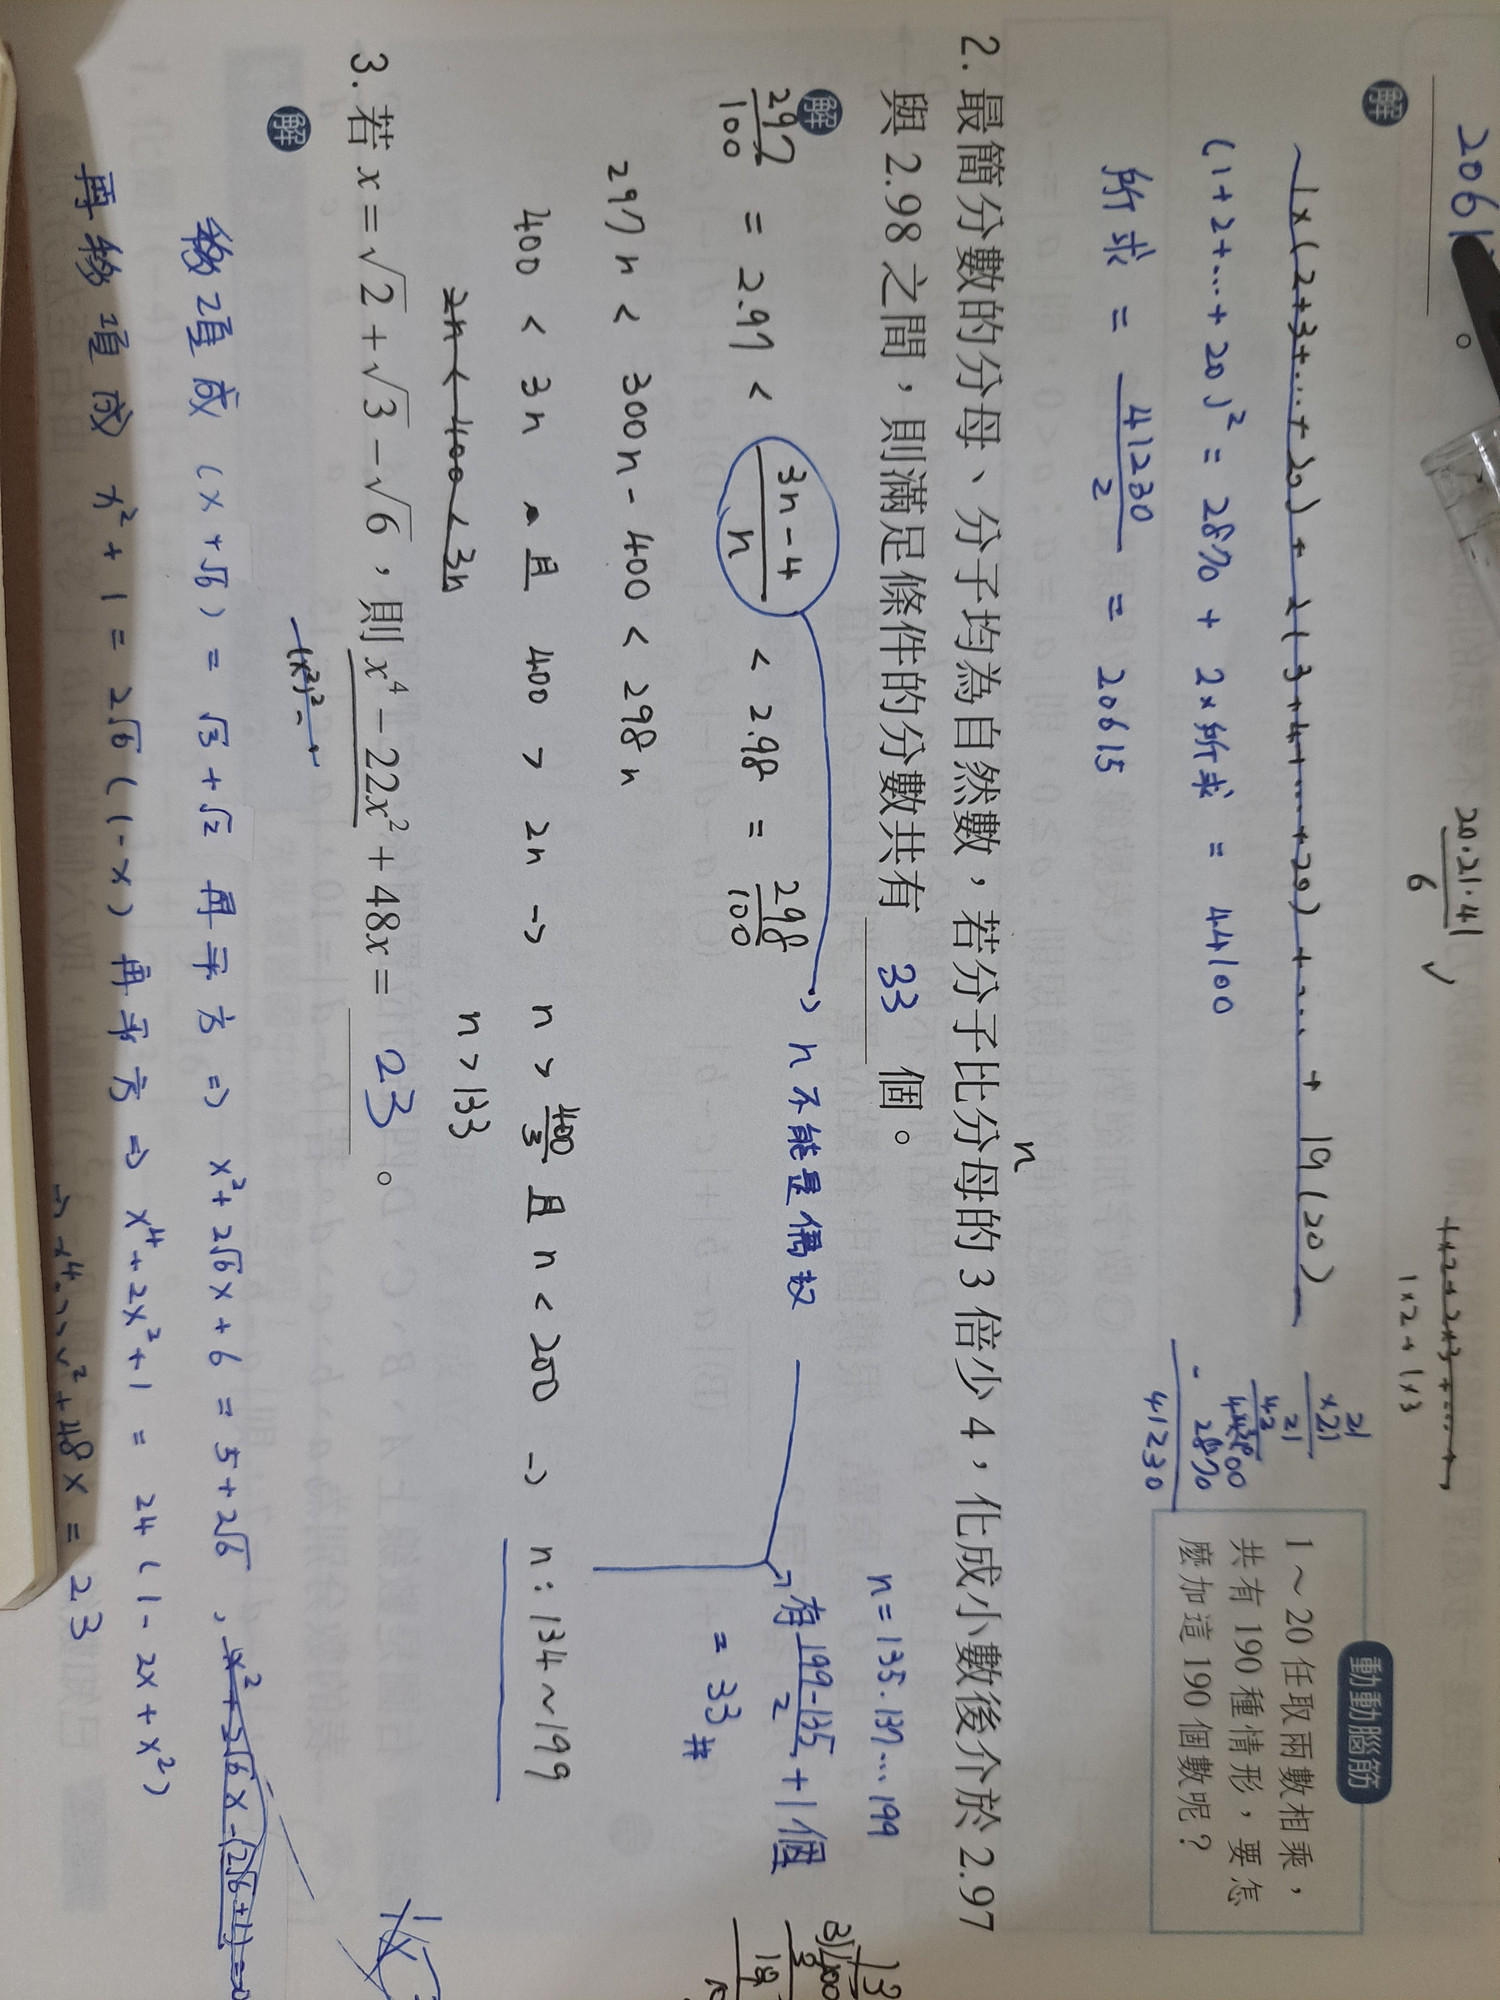 20615。
20·21·41
6
1×2+2×3+....+
1×2+1×3
解
1×(2+3+...+20)+2(3+4+...+20)+.... + 19(20)
(1+2+...+20)² = 2870 + 2×所求 = 44100
所求 = 41230/2 = 20615
21
×21
21
42
44100
- 2870
41230
動動腦筋
1～20 任取兩數相乘，
共有 190 種情形，要怎
麼加這 190 個數呢？
n
2. 最簡分數的分母、分子均為自然數，若分子比分母的 3 倍少 4，化成小數後介於 2.97
與 2.98 之間，則滿足條件的分數共有 33 個。
解
297/100 = 2.97 < (3n-4)/n < 2.98 = 298/100
→ n 不能是偶數
n = 135.137...199
有 (199-135)/2 + 1 個
= 33 #
297n < 300n - 400 < 298n
400 < 3n 且 400 > 2n → n > 400/3 且 n < 200 → n : 134 ~ 199
2n < 400 < 3n
n > 133
3. 若 x = √2 + √3 - √6，則 x⁴ - 22x² + 48x = 23。
解
(x²)² -
移項成 (x + √6) = √3 + √2 再平方 ⇒ x² + 2√6x + 6 = 5 + 2√6 , x² + 2√6x - (2√6+1) = 0
再移項成 x² + 1 = 2√6(1-x) 再平方 ⇒ x⁴ + 2x² + 1 = 24(1 - 2x + x²)
⇒ x⁴ - 22x² + 48x = 23